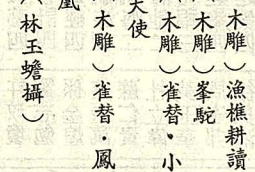 木雕）漁樵耕讀
（木雕）峯駝
（木雕）雀替・小
天使
（木雕）雀替・鳳
凰
（林玉蟾攝）